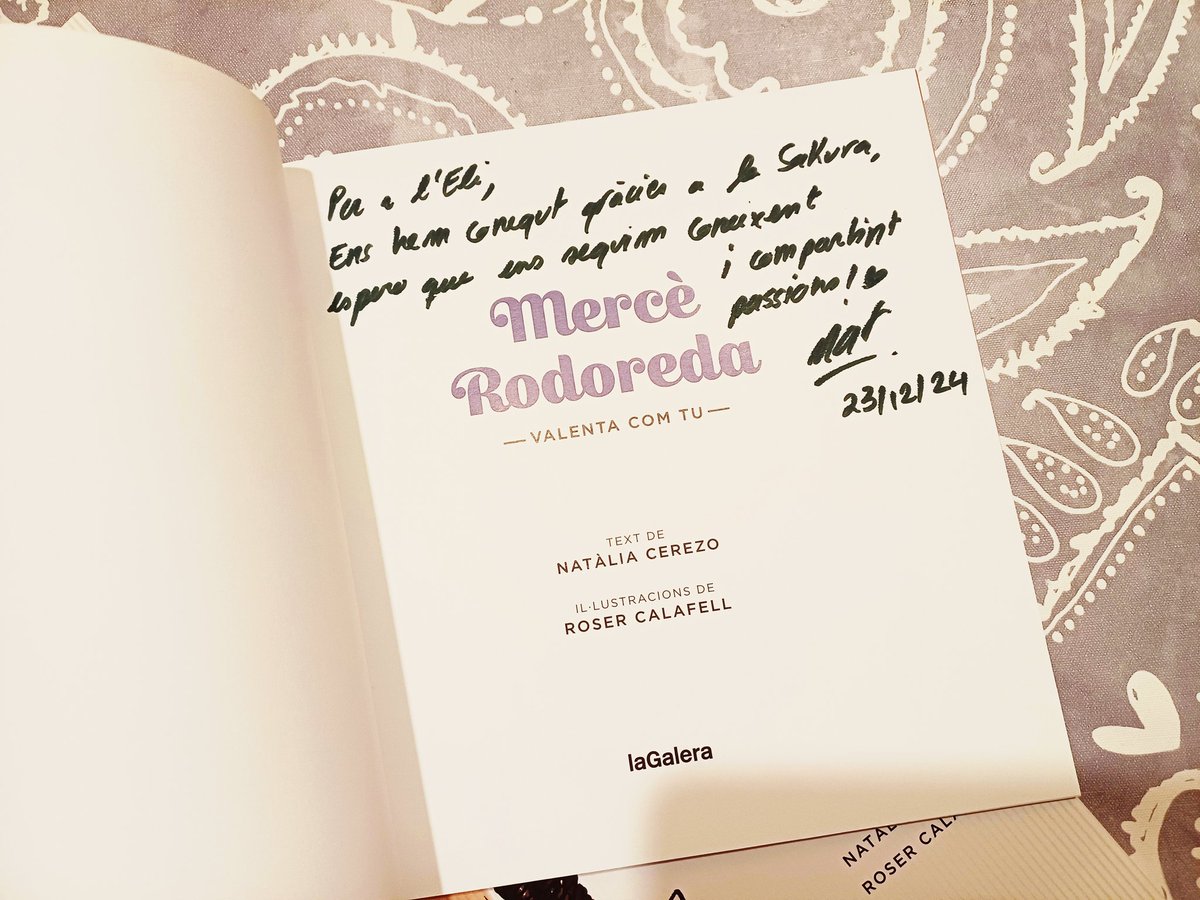 Per a l'Eli,
Ens hem conegut gràcies a la Sakura,
espero que ens seguim coneixent
i compartint
passions!
Nat
23/12/24
Mercè
Rodoreda
—VALENTA COM TU—
TEXT DE
NATÀLIA CEREZO
IL·LUSTRACIONS DE
ROSER CALAFELL
laGalera
NATÀL
ROSER CALA